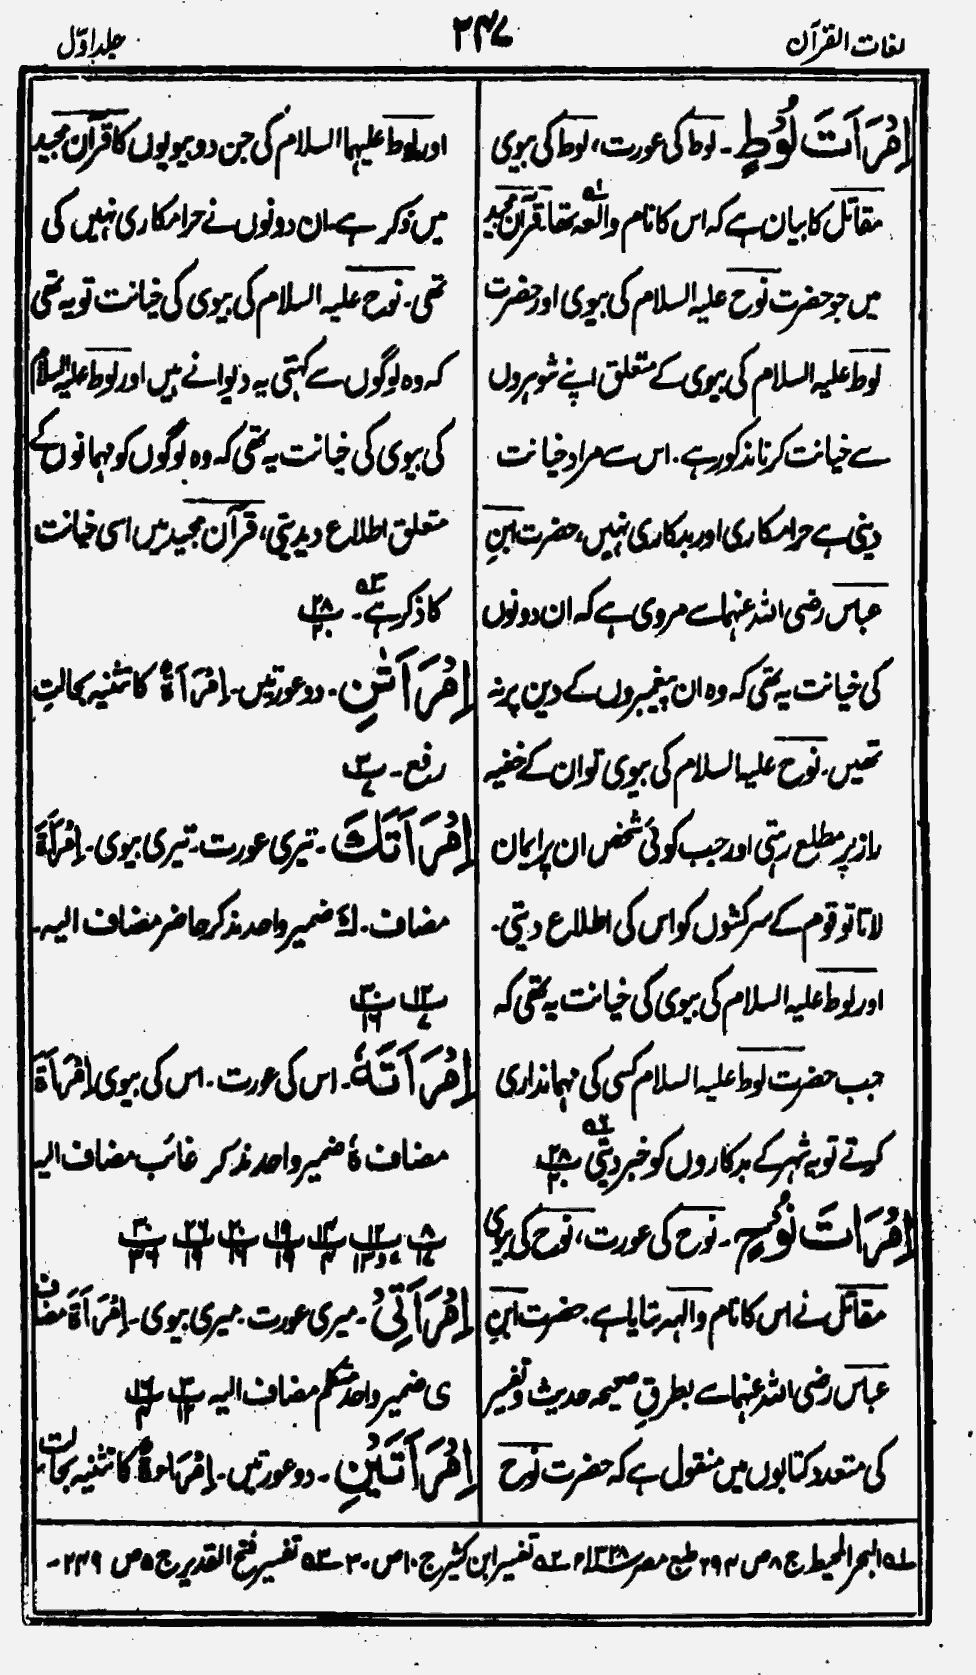 لغات القرآن
۲۴۷
جلد اوّل
اِمْرَاَتَ لُوْطٍ ۔ لوط کی عورت، لوط کی بیوی
مقاتل کا بیان ہے کہ اس کا نام والعہ تھا قرآن مجید
میں جو حضرت نوح علیہ السلام کی بیوی اور حضرت
لوط علیہ السلام کی بیوی کے متعلق اپنے شوہروں
سے خیانت کرنا مذکور ہے ۔ اس سے مراد خیانت
دینی ہے حرامکاری اور بدکاری نہیں، حضرت ابنِ
عباس رضی اللہ عنہما سے مروی ہے کہ ان دونوں
کی خیانت یہ تھی کہ وہ ان پیغمبروں کے دین پر نہ
تھیں ۔ نوح علیہ السلام کی بیوی تو ان کے خفیہ
راز پر مطلع رہتی اور جب کوئی شخص ان پر ایمان
لاتا تو قوم کے سرکشوں کو اس کی اطلاع دیتی ۔
اور لوط علیہ السلام کی بیوی کی خیانت یہ تھی کہ
جب حضرت لوط علیہ السلام کسی کی مہمانداری
کرتے تو یہ شہر کے بدکاروں کو خبر دیتی ۵۲ ۲۸ پ ۲۰
اِمْرَاَتَ نُوْحٍ ۔ نوح کی عورت، نوح کی بیوی
مقاتل نے اس کا نام والہہ بتایا ہے ۔ حضرت ابنِ
عباس رضی اللہ عنہما سے بطرقِ صحیحہ حدیث و تفسیر
کی متعدد کتابوں میں منقول ہے کہ حضرت نوح
اور لوط علیہما السلام کی جن دو بیویوں کا قرآن مجید
میں ذکر ہے ۔ ان دونوں نے حرامکاری نہیں کی
تھی ۔ نوح علیہ السلام کی بیوی کی خیانت تو یہ تھی
کہ وہ لوگوں سے کہتی یہ دیوانے ہیں اور لوط علیہ السلام
کی بیوی کی خیانت یہ تھی کہ وہ لوگوں کو مہمانوں کے
متعلق اطلاع دیدیتی، قرآن مجید میں اسی خیانت
کا ذکر ہے ۵۳ ۔ ۲۸ پ ۲۰
اِمْرَاَتٰنِ ۔ دو عورتیں ۔ اِمْرَاَةٌ کا تثنیہ بحالتِ
رفع ۔ ۳ پ ۷
اِمْرَاَتَكَ ۔ تیری عورت ۔ تیری بیوی ۔ اِمْرَاَةَ
مضاف ۔ كَ ضمیر واحد مذکر حاضر مضاف الیہ ۔
۱۲ پ ۷ ۲۰ پ ۱۶
اِمْرَاَتَهٗ ۔ اس کی عورت ۔ اس کی بیوی اِمْرَاَةَ
مضاف هٗ ضمیر واحد مذکر غائب مضاف الیہ
۸ پ ۱۷ ۱۲ پ ۷ و ۱۳ ۱۴ پ ۴ ۱۹ پ ۱۹ ۲۰ پ ۱۶ ۲۶ پ ۱۹ ۳۰ پ ۳۶
اِمْرَاَتِيْ ۔ میری عورت ۔ میری بیوی ۔ اِمْرَاَةَ مضاف
ی ضمیر واحد متکلم مضاف الیہ ۳ پ ۱۲ ۱۶ پ ۴
اِمْرَاَتَيْنِ ۔ دو عورتیں ۔ اِمْرَاَةٌ کا تثنیہ بحالت
۵۱ البحر المحیط ج ۸ ص ۲۹۴ طبع مصر ۱۳۲۸ھ ۵۲ تفسیر ابن کثیر ج ۱۰ ص ۳۰ ۵۳ تفسیر فتح القدیر ج ۵ ص ۲۴۹ ۔